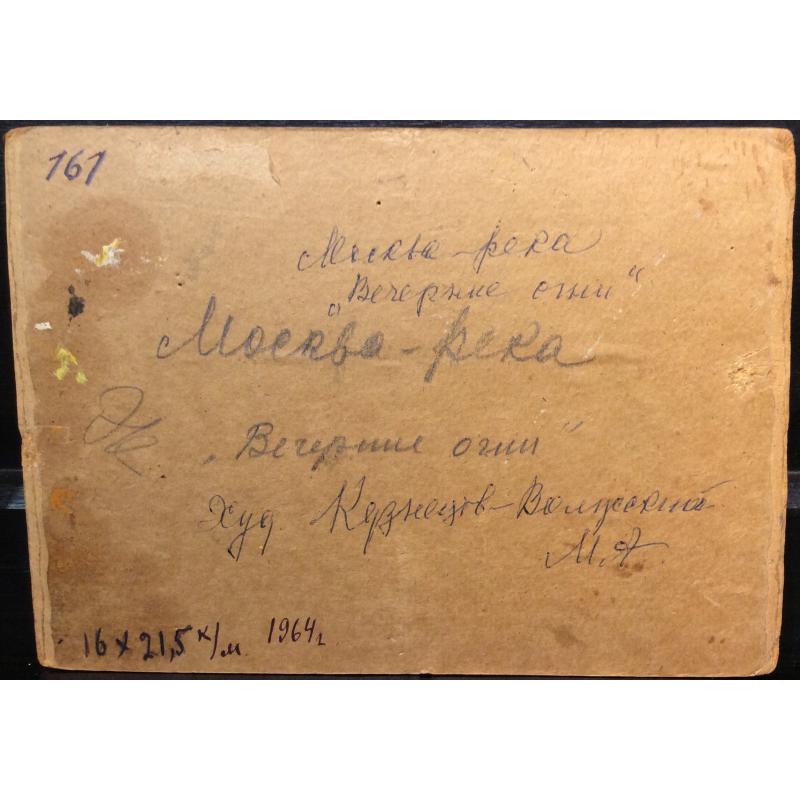 161
Москва-река
„Вечерние огни“
Москва-река
„Вечерние огни“
Худ. Кузнецов-Волжский
М.А.
16 х 21,5 к/м. 1964г